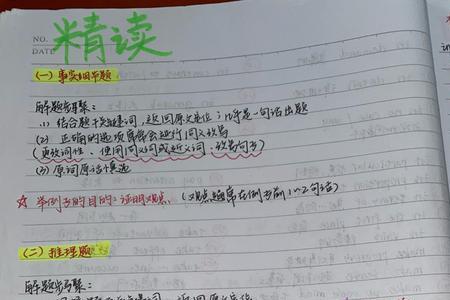 NO.
DATE
精读
(一) 事实细节题
解题步骤：
(1) 结合题干关键词，返回原文定位；几乎是一句话出题
(2) 正确的选项常常会进行同义改写
(更改词性、使用同义词或近义词、改写句子)
(3) 原词原话慎选
☆ 举例子的目的：证明观点. (观点通常在例子前1~2句话)
(二) 推理题
解题步骤：